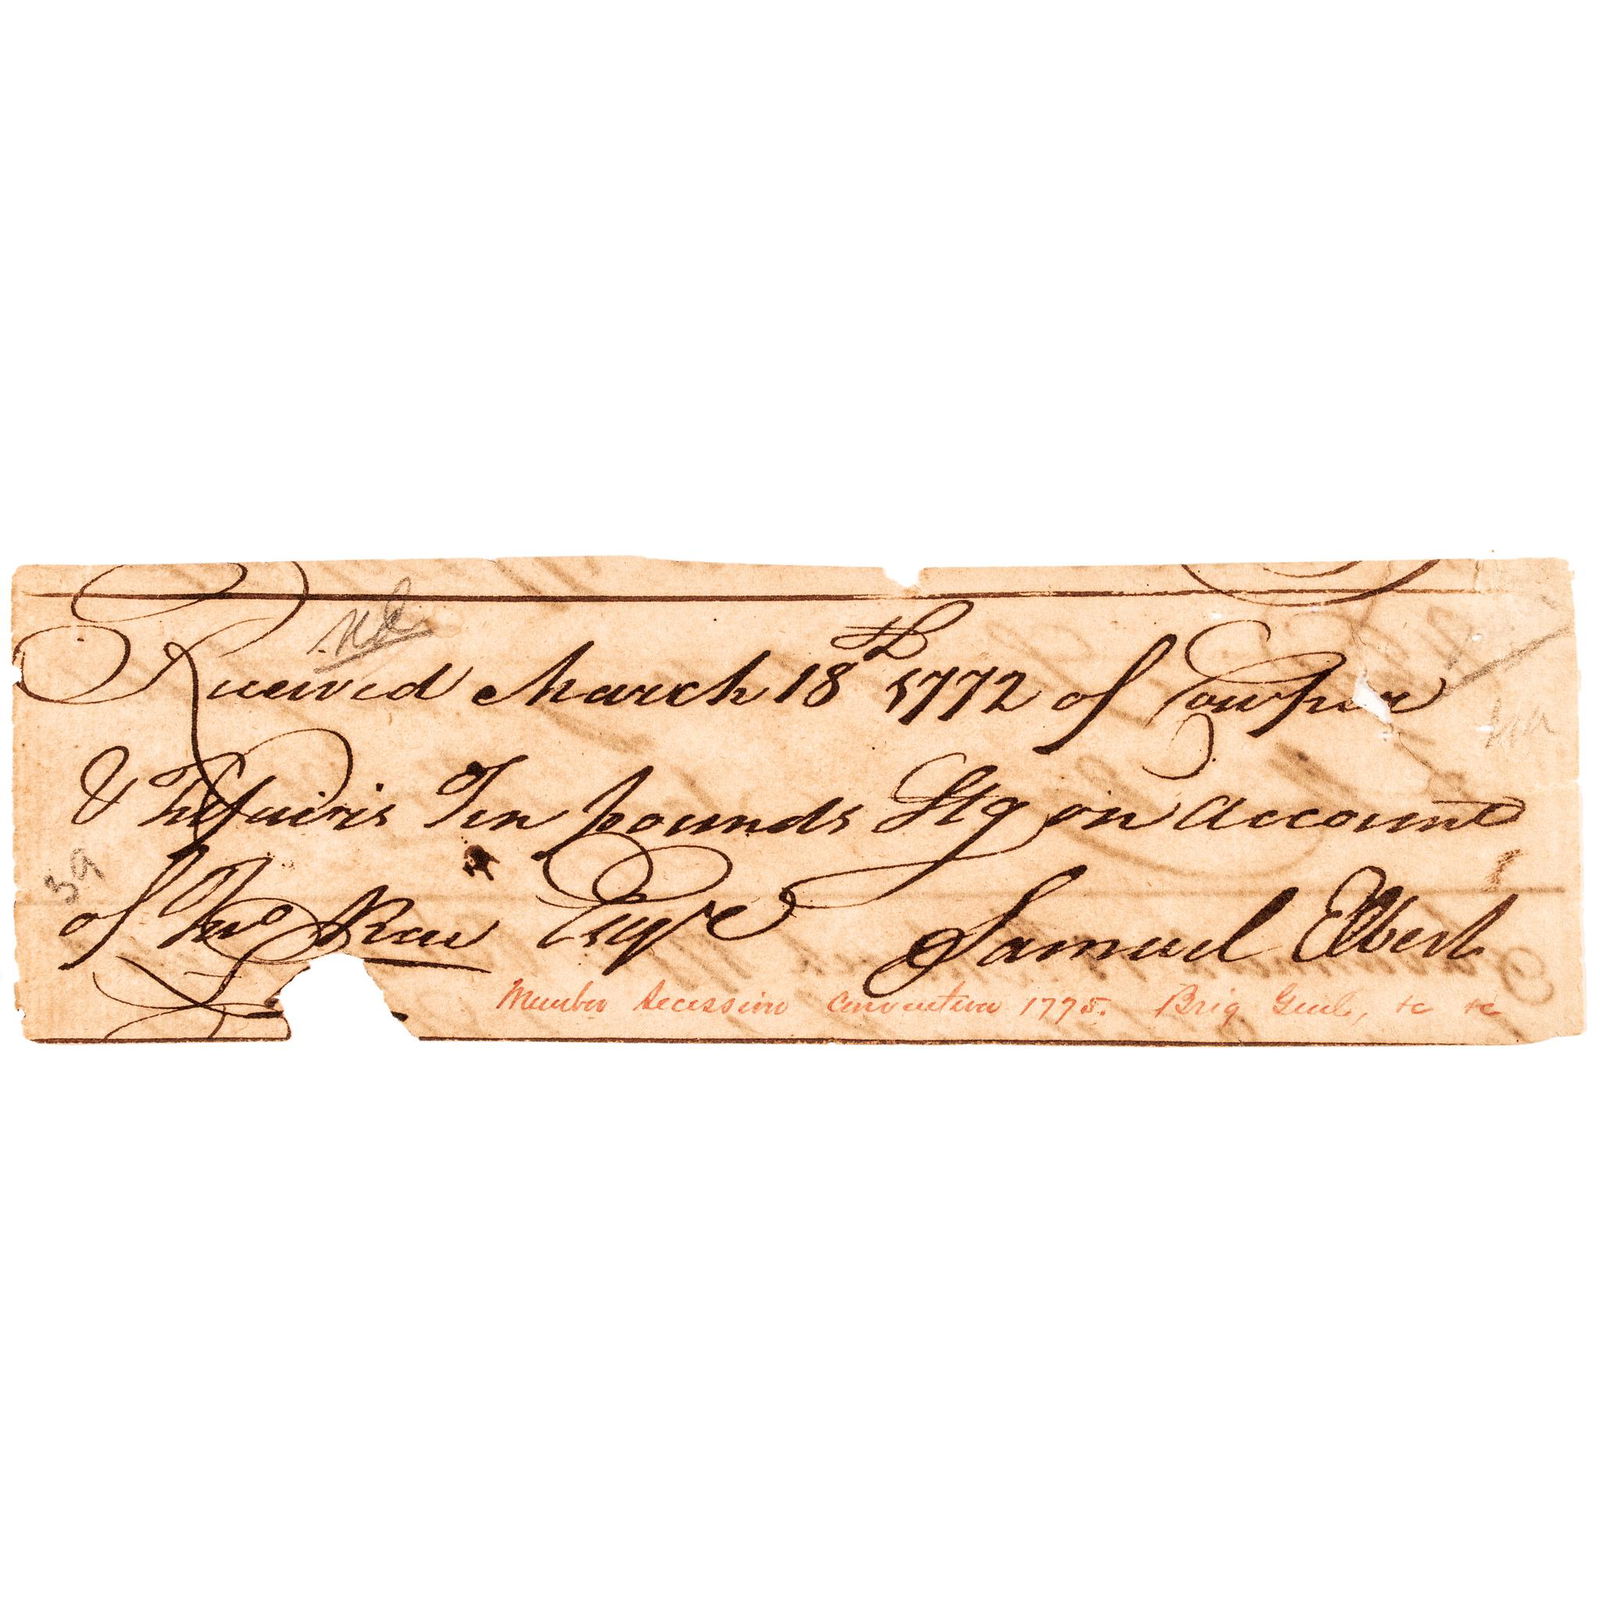 Received March 18th 1772 of Cowper
& Telfairs Ten pounds Stg on account
of Jno Rae Esqre Samuel Elbert
Member Secession Convention 1775. Brig Genl, &c &c
39